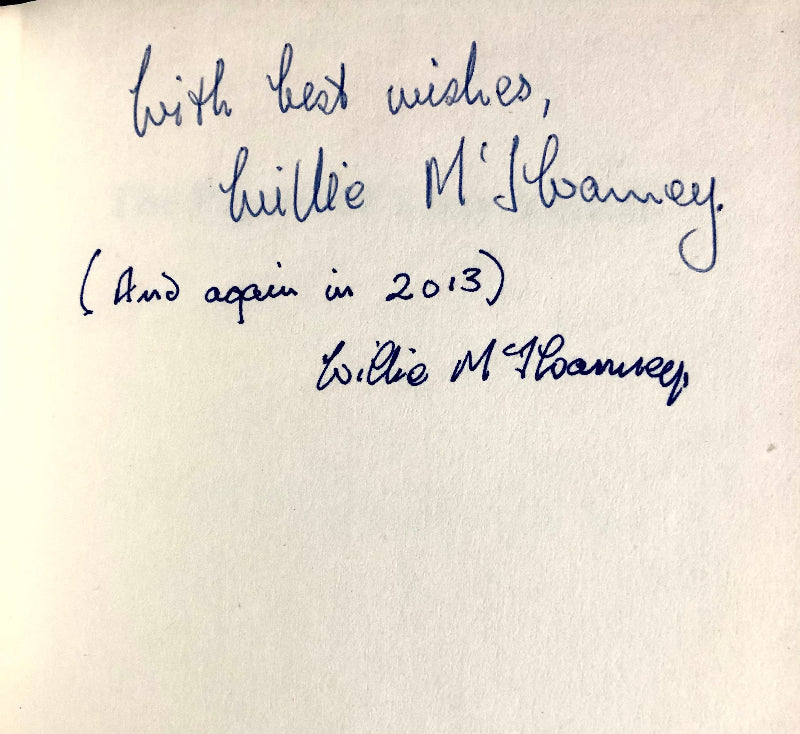 With best wishes,
Willie McIlvanney.
(And again in 2013)
Willie McIlvanney.